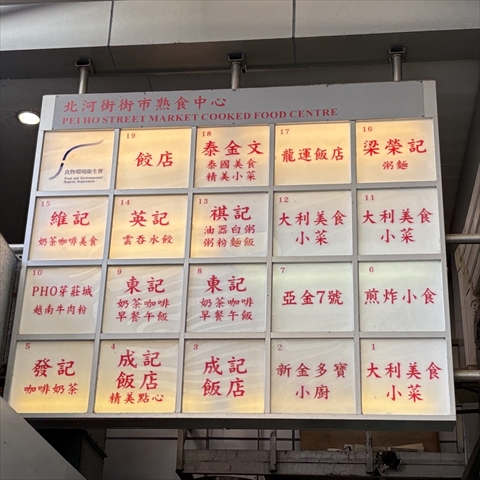 北河街街市熟食中心
PEI HO STREET MARKET COOKED FOOD CENTRE
食物環境衞生署
Food and Environmental
Hygiene Department
19
餃店
18
泰金文
泰國美食
精美小菜
17
龍運飯店
16
梁榮記
粥麵
15
維記
奶茶咖啡美食
14
英記
雲吞水餃
13
祺記
油器白粥
粥粉麵飯
12
大利美食
小菜
11
大利美食
小菜
10
PHO芽莊城
越南牛肉粉
9
東記
奶茶咖啡
早餐午飯
8
東記
奶茶咖啡
早餐午飯
7
亞金7號
6
煎炸小食
5
發記
咖啡奶茶
4
成記
飯店
精美點心
3
成記
飯店
2
新金多寶
小廚
1
大利美食
小菜